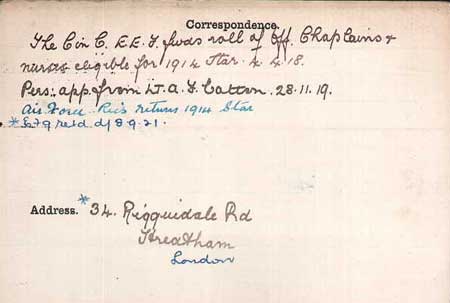 Correspondence.
The C in C. E.E.F. fwds roll of Off. Chaplains &
nurses eligible for 1914 Star. 4.4.18.
Pers: app. from Lt. A. F. Catton. 28.11.19.
Air Force Rec's return 1914 Star
* retd. d/ 8.9.21.
Address. * 34. Rigguidale Rd
Streatham
London